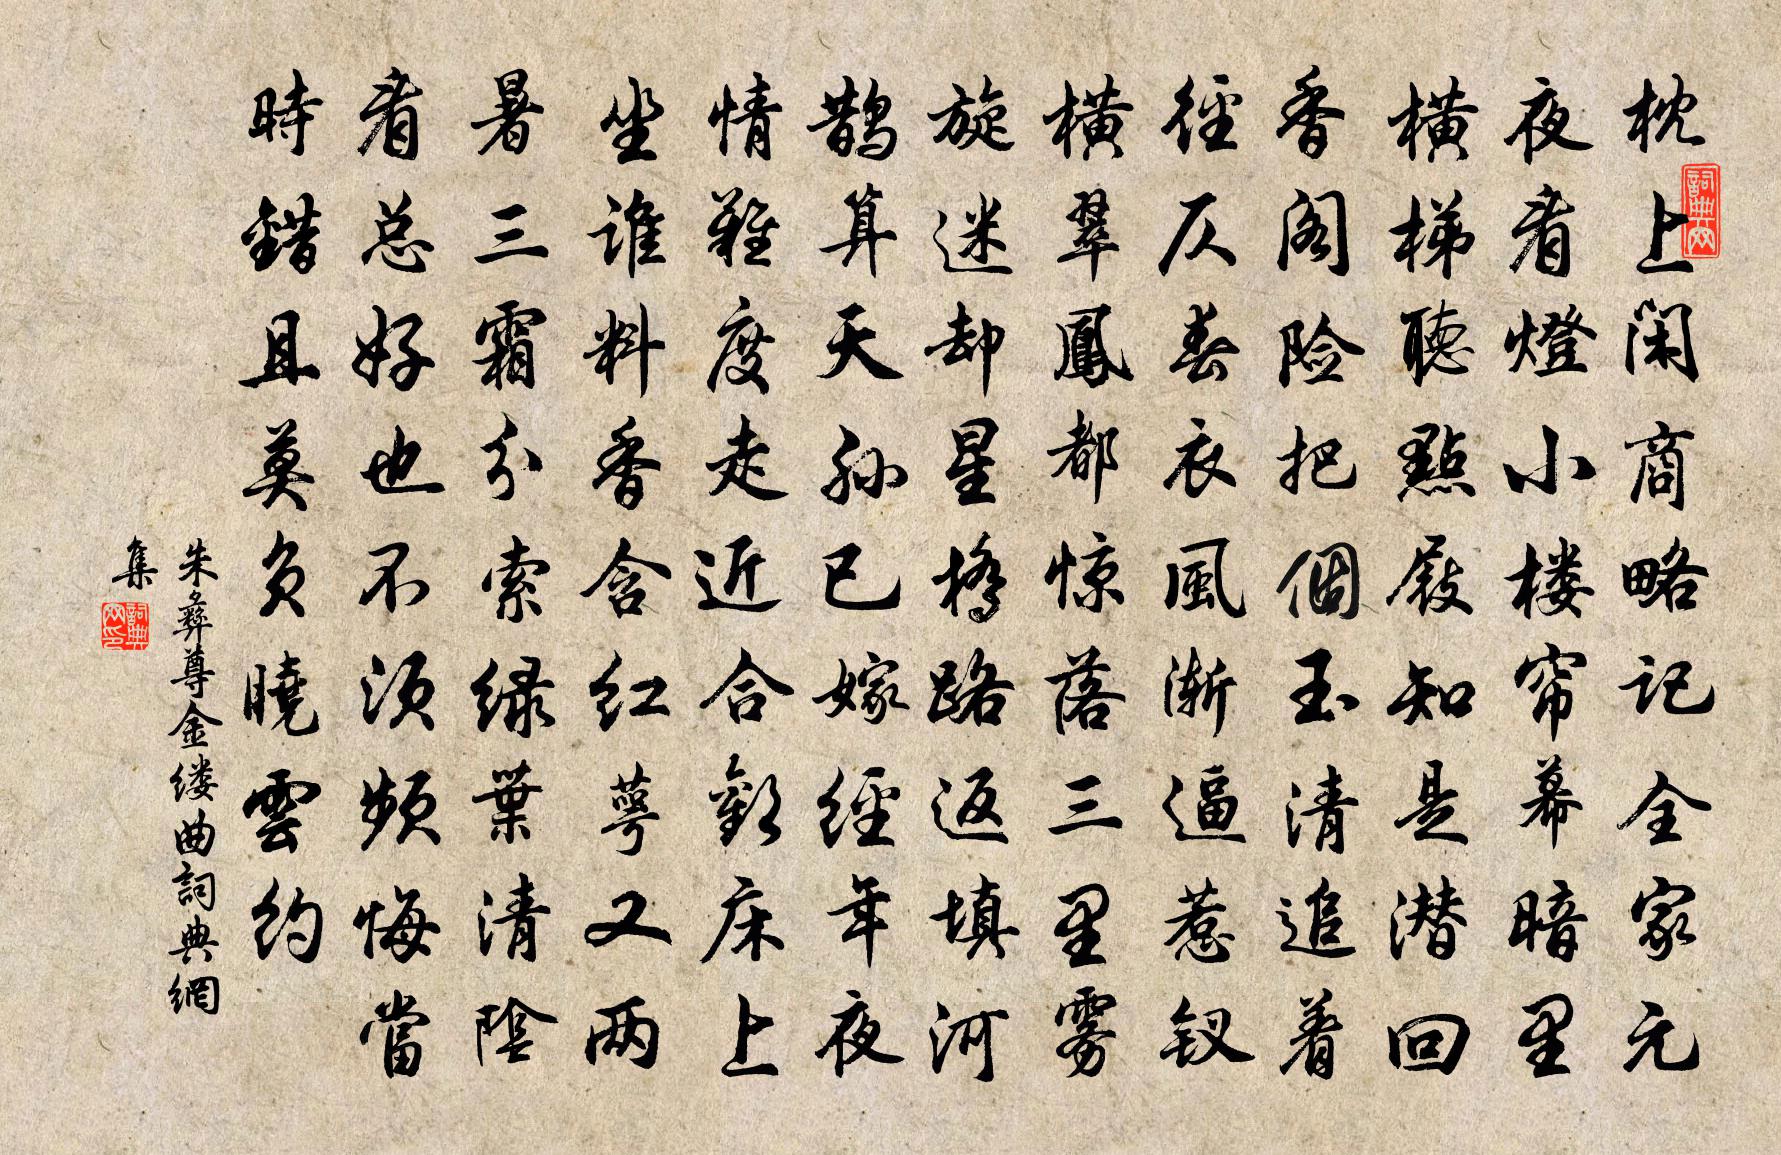 枕上闲商略记全家元
夜看燈小楼帘幕暗里
横梯聽點屐知是潜回
香阁险把個玉清追着
徑仄春衣風渐逼惹钗
横翠鳳都惊落三里雾
旋迷却星橋路返填河
鹊算天孙已嫁經年夜
情難度走近合歡床上
坐谁料香含红萼又两
暑三霜分索绿葉清陰
看总好也不须頻悔當
時錯且莫负曉雲约
朱彝尊金缕曲詞典網
集
詞典网
詞典网印